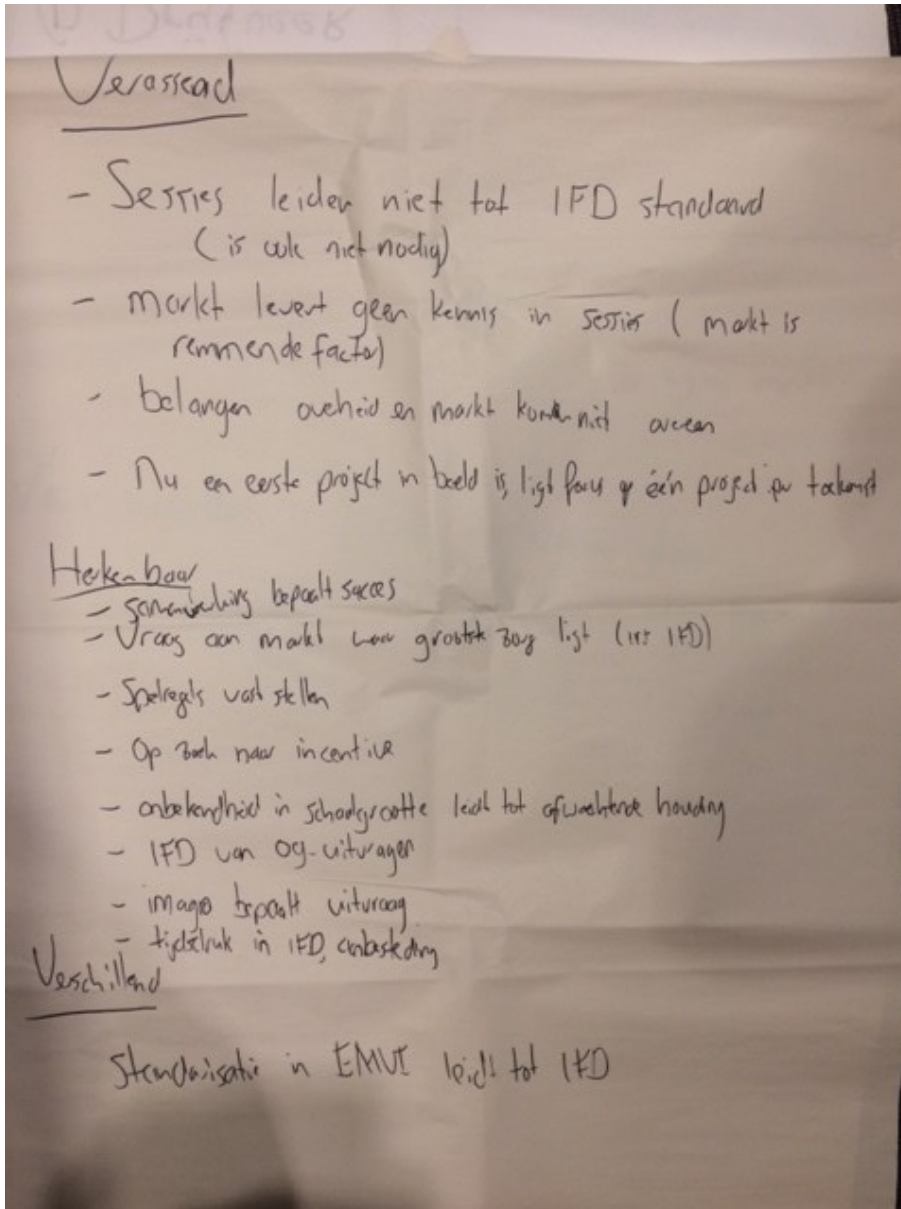 Verassend
- Sessies leiden niet tot IFD standaard
( is ook niet nodig)
- markt levert geen kennis in sessies ( markt is
remmende factor)
- belangen overheid en markt komen niet overeen
- Nu en eerste project in beeld is, ligt focus op één project ipv toekomst
Herkenbaar
- samenwerking bepaalt succes
- Vraag aan markt waar grootste zorg ligt (irt IFD)
- Spelregels vast stellen
- Op zoek naar incentive
- onbekendheid in schaalgrootte leidt tot afwachtende houding
- IFD van og-uitvragen
- imago bepaalt uitvraag
- tijdsdruk in IFD, aanbesteding
Verschillend
Standarisatie in EMVI leidt tot IFD